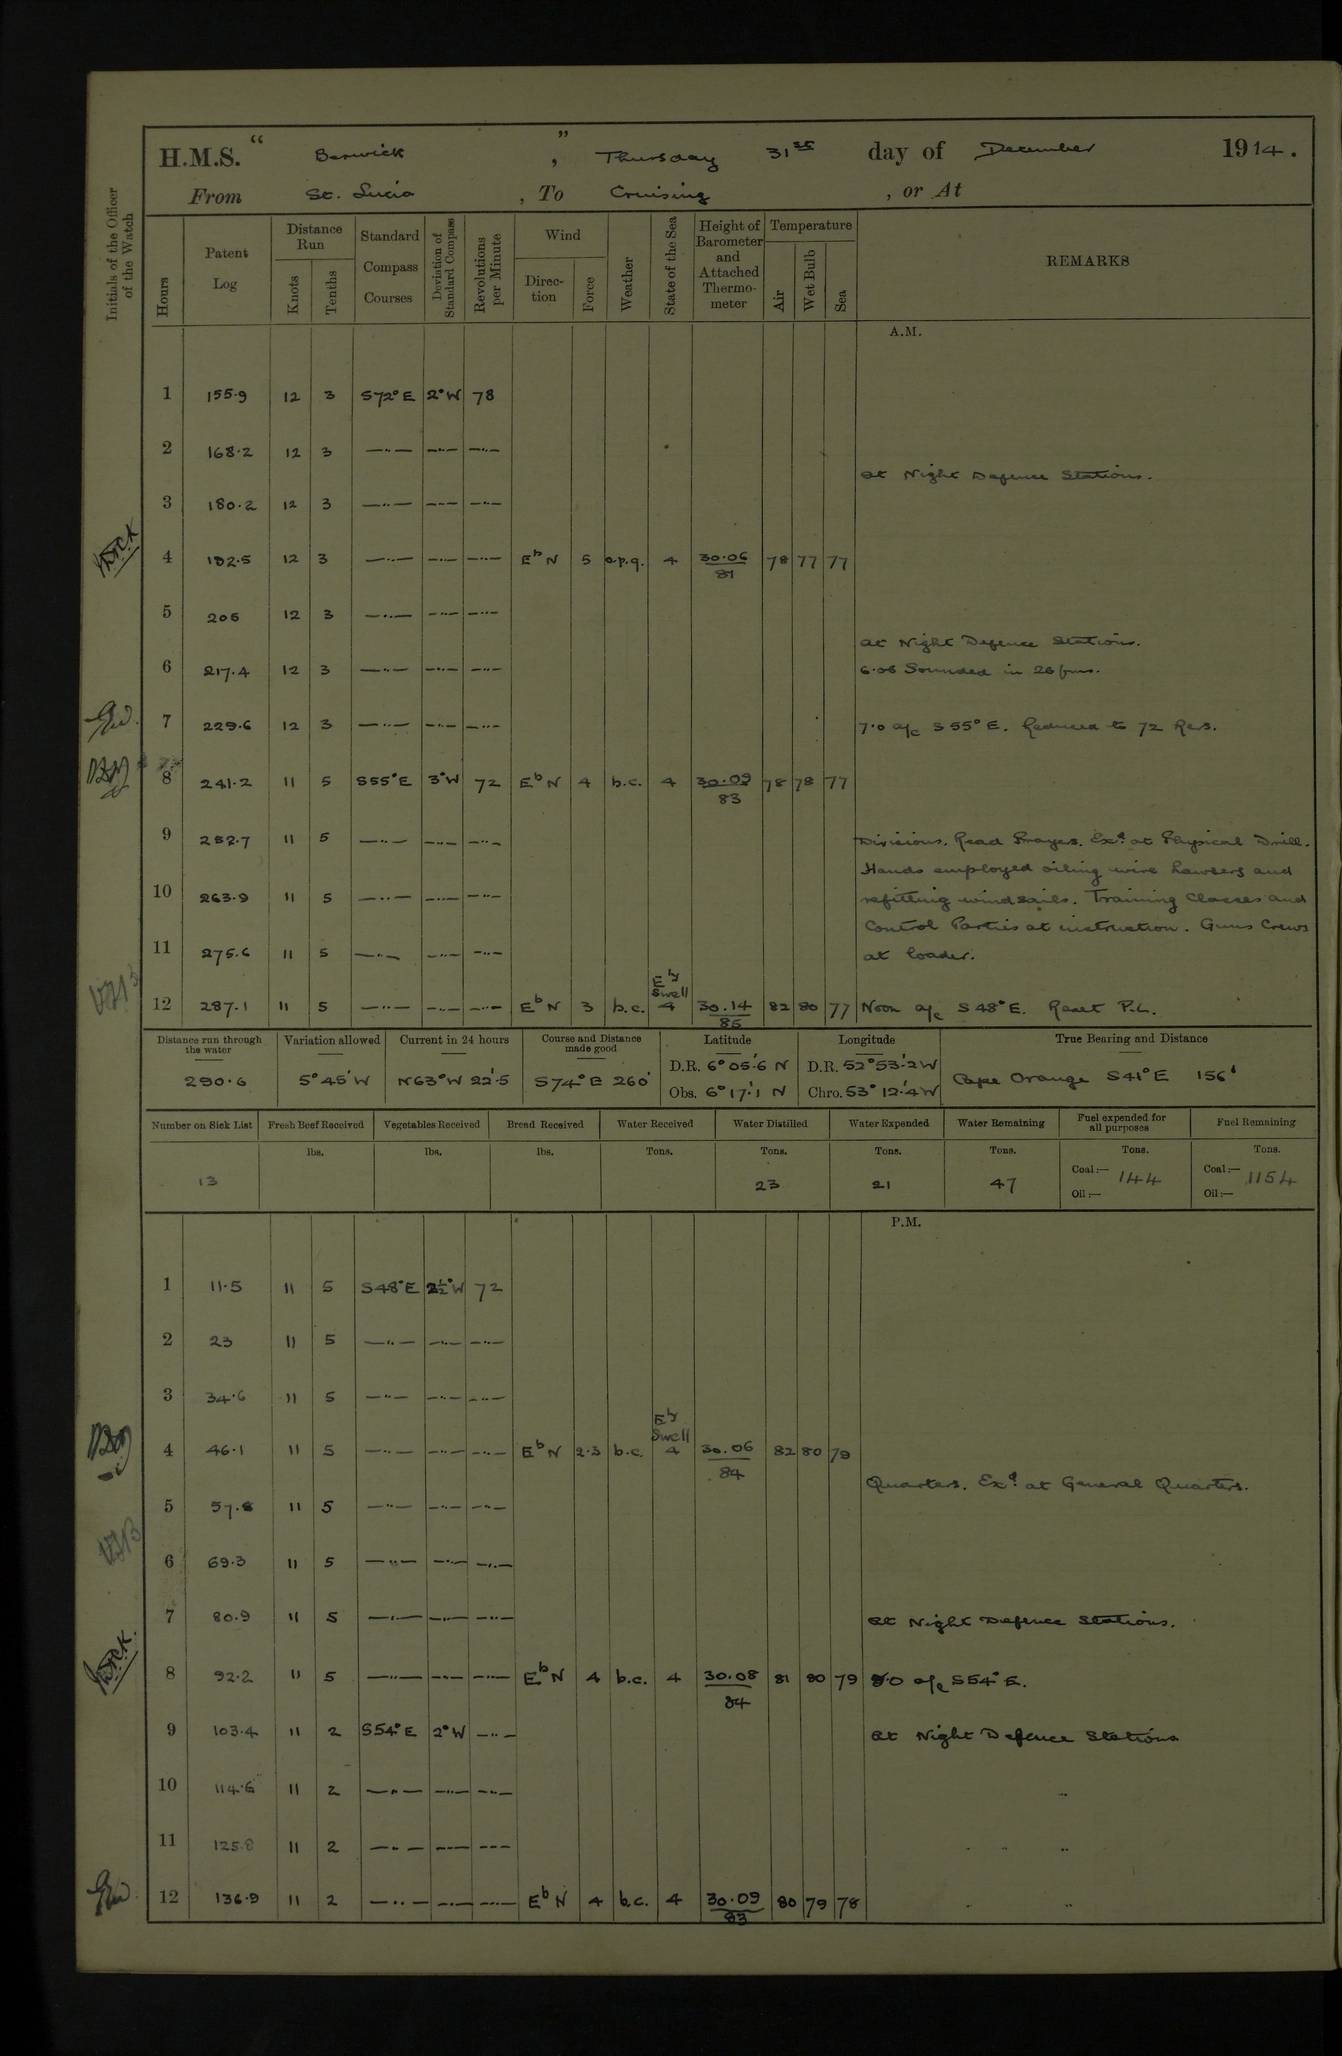 H.M.S. “ Berwick ” , Thursday 31st day of December 1914.
From St. Lucia , To Cruising , or At
Initials of the Officer of the Watch
Hours Patent Log Distance Run Knots Tenths Standard Compass Courses Deviation of Standard Compass Revolutions per Minute Wind Direction Force Weather State of the Sea Height of Barometer and Attached Thermometer Temperature Air Wet Bulb Sea REMARKS
A.M.
1 155.9 12 3 S72°E 2°W 78
2 168.2 12 3 —..— —..— —..—
at Night Defence Stations.
3 180.2 12 3 —..— —..— —..—
4 192.5 12 3 —..— —..— —..— EbN 5 o.p.q. 4 30.06 78 77 77
81
5 205 12 3 —..— —..— —..—
at Night Defence Stations.
6 217.4 12 3 —..— —..— —..— 6.06 Sounded in 26 fms.
7 229.6 12 3 —..— —..— —..— 7.0 a/c S55°E. Reduced to 72 Revs.
8 241.2 11 5 S55°E 3°W 72 EbN 4 b.c. 4 30.09 78 78 77
83
9 252.7 11 5 —..— —..— —..— Divisions. Read Prayers. Exd. at Physical Drill.
Hands employed oiling wire hawsers and
10 263.9 11 5 —..— —..— —..— refitting windsails. Training Classes and
Control Parties at instruction. Guns Crews
11 275.6 11 5 —..— —..— —..— at loader.
Ely Swell
12 287.1 11 5 —..— —..— —..— EbN 3 b.c. 4 30.14 82 80 77 Noon a/c S48°E. Reset P.L.
85
Distance run through the water Variation allowed Current in 24 hours Course and Distance made good Latitude Longitude True Bearing and Distance
290.6 5°45'W N63°W 22'.5 S74°E 260' D.R. 6°05'.6 N D.R. 52°53'.2W Cape Orange S41°E 156'
Obs. 6°17'.1 N Chro. 53°12'.4W
Number on Sick List Fresh Beef Received Vegetables Received Bread Received Water Received Water Distilled Water Expended Water Remaining Fuel expended for all purposes Fuel Remaining
lbs. lbs. lbs. Tons. Tons. Tons. Tons. Tons. Tons.
13 23 21 47 Coal:— 144 Coal:— 1154
Oil:— Oil:—
P.M.
1 11.5 11 5 S48°E 2½°W 72
2 23 11 5 —..— —..— —..—
3 34.6 11 5 —..— —..— —..—
Ely Swell
4 46.1 11 5 —..— —..— —..— EbN 2.3 b.c. 4 30.06 82 80 79
84
Quarters. Exd. at General Quarters.
5 57.8 11 5 —..— —..— —..—
6 69.3 11 5 —..— —..— —..—
7 80.9 11 5 —..— —..— —..— at Night Defence Stations.
8 92.2 11 5 —..— —..— —..— EbN 4 b.c. 4 30.08 81 80 79 8.0 a/c S54°E.
84
9 103.4 11 2 S54°E 2°W —..— at Night Defence Stations
10 114.6 11 2 —..— —..— —..— ..
11 125.8 11 2 —..— —..— —..— .. ..
12 136.9 11 2 —..— —..— —..— EbN 4 b.c. 4 30.09 80 79 78 .. ..
83